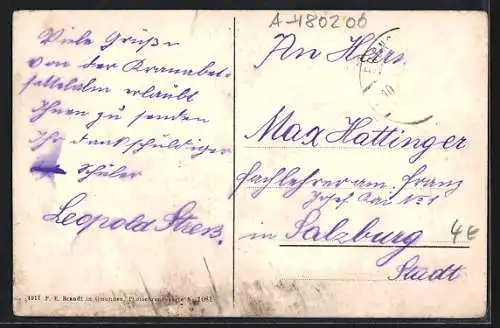 A-480206
Viele Grüße
von der Kranabet-
sattelalm erlaubt
Ihnen zu senden
Ihr dankschuldiger
Schüler
Leopold Streß.
An Herrn
Max Hattinger
Fachlehrer am Franz
Josef Kai No 1
in Salzburg
Stadt
4€
1911 F. E. Brandt in Gmunden.